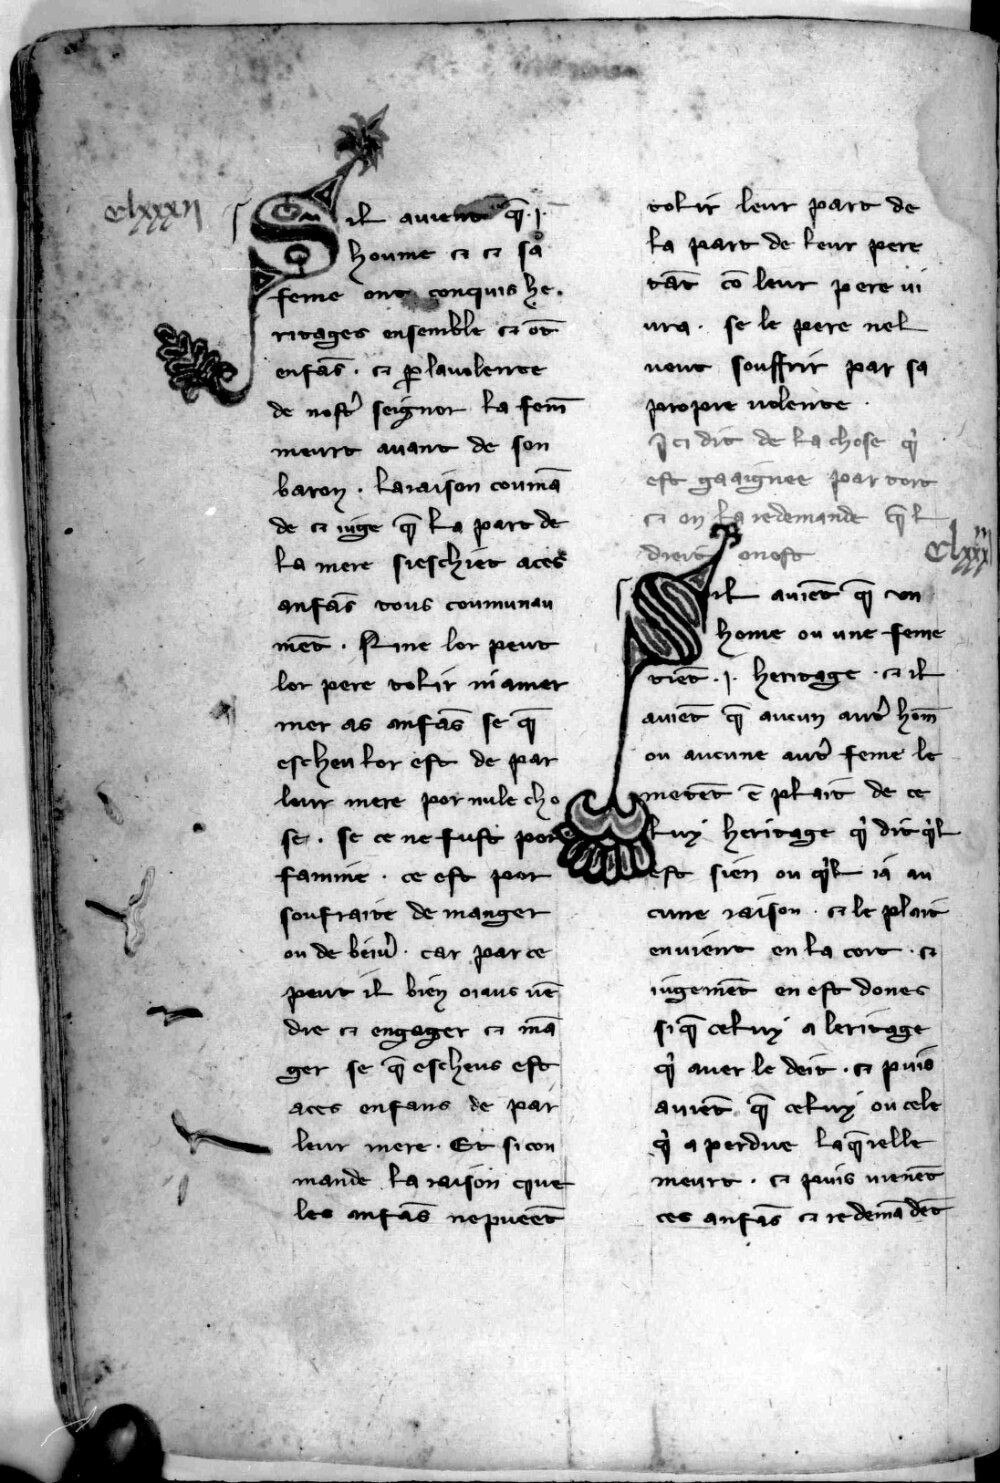 clxxxii
Sil auient q̄ .i.
houme ⁊ ⁊ sa
feme ont conquis he.
ritages ensemble ⁊ ōt
enfās . ⁊ ꝑ lauolente
de nostᷣ seignor la fem̄
meurt auant de son
baron . laraison coumā
de ⁊ iuge q̄ la part de
la mere sieschiet aces
anfās tous coumunau
mēt . Rine lor peut
lor pere tolir ni amer
mer as anfās se q̄
escheu lor est de par
leur mere por nule cho
se . se ce ne fust por
famine . ce est por
soufraite de manger
ou de beiuᷣ . car par ce
peut il bien oiaus uē
dre ⁊ engager ⁊ mā
ger se q̄ escheus est
aces enfans de par
leur mere . Et si con
mande la raison que
les anfās ne pueēt
tolir leur part de
la part de leur pere
tāt cō leur pere ui
ura . se le pere nel
ueut souffrir par sa
propre uolente .
Ici dit de la chose qͥ
est gaaignee par tort
⁊ on la redemande q̄ l
droit en est
clxxxiii
Sil auiēt q̄ vn
home ou une feme
tiēt .i. heritage . ⁊ il
auiēt q̄ aucun autᷣ hom̄
ou aucune autᷣ feme le
metēt ē plait de ce
luy heritage qͥ dit qͥl
est sien ou qͥl ia au
cune raison . ⁊ le plait
en uient en la cort . ⁊
iugemēt en est dones
si q̄ celuy a leritage
qͥ auer le deit . ⁊ puis
auiēt q̄ celuy ou cele
qͥ a perdue laq̄ielle
meurt . ⁊ puis uienēt
ces anfās ⁊ redemādēt